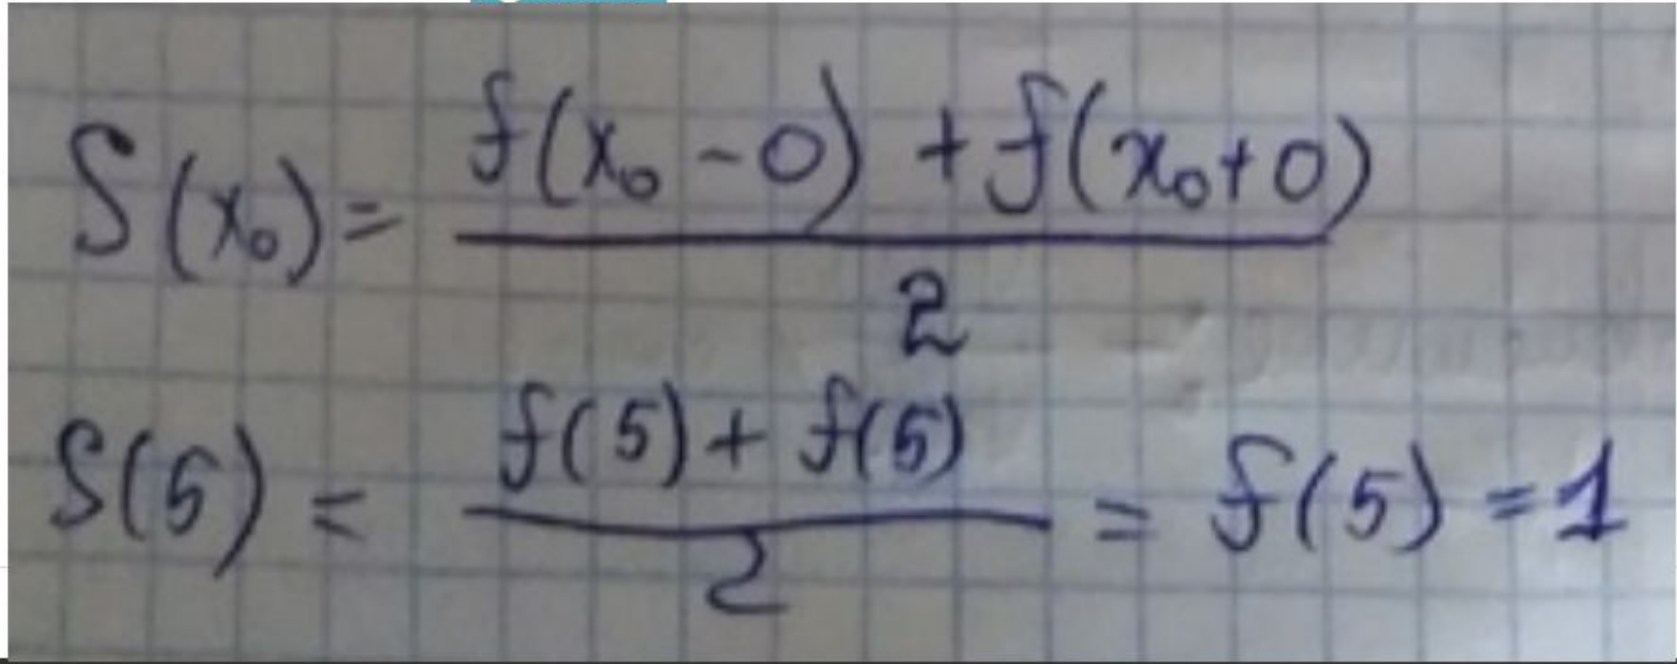 S(x₀) = (f(x₀ - 0) + f(x₀ + 0)) / 2
S(5) = (f(5) + f(5)) / 2 = f(5) = 1